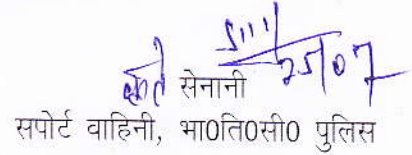 25/07
कृते सेनानी
सपोर्ट वाहिनी, भा0ति0सी0 पुलिस